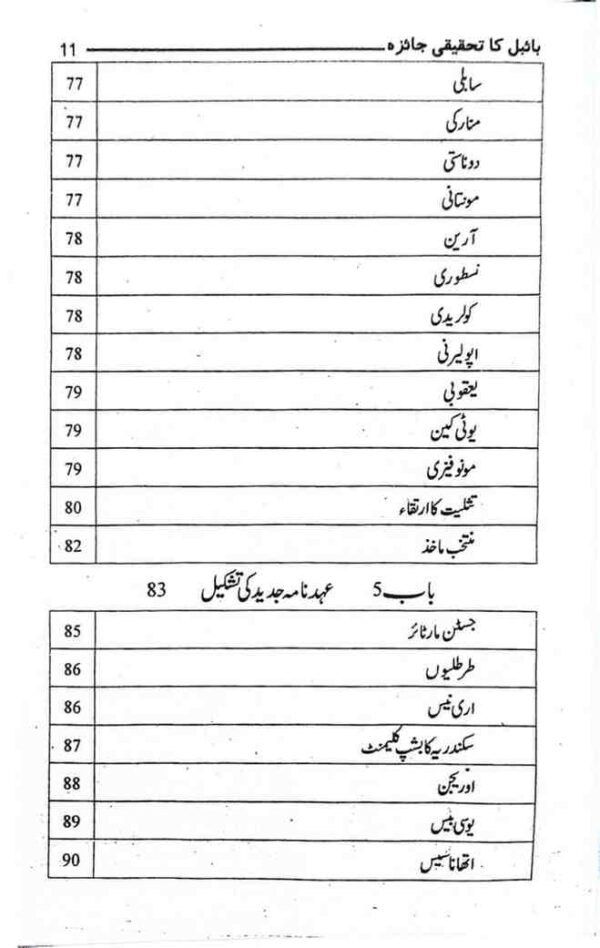 بائبل کا تحقیقی جائزہ 11
سابلی 77
منارکی 77
دوناستی 77
مونتانی 77
آرین 78
نسطوری 78
کولریدی 78
اپولیرنی 78
یعقوبی 79
یوٹی کین 79
مونوفیزی 79
تثلیث کا ارتقاء 80
منتخب ماخذ 82
باب 5 عہد نامہ جدید کی تشکیل 83
جسٹن مارٹائر 85
طرطلیوں 86
اری نیس 86
سکندریہ کا بشپ کلیمنٹ 87
اوریجن 88
یوسی بیس 89
اتھاناسیس 90